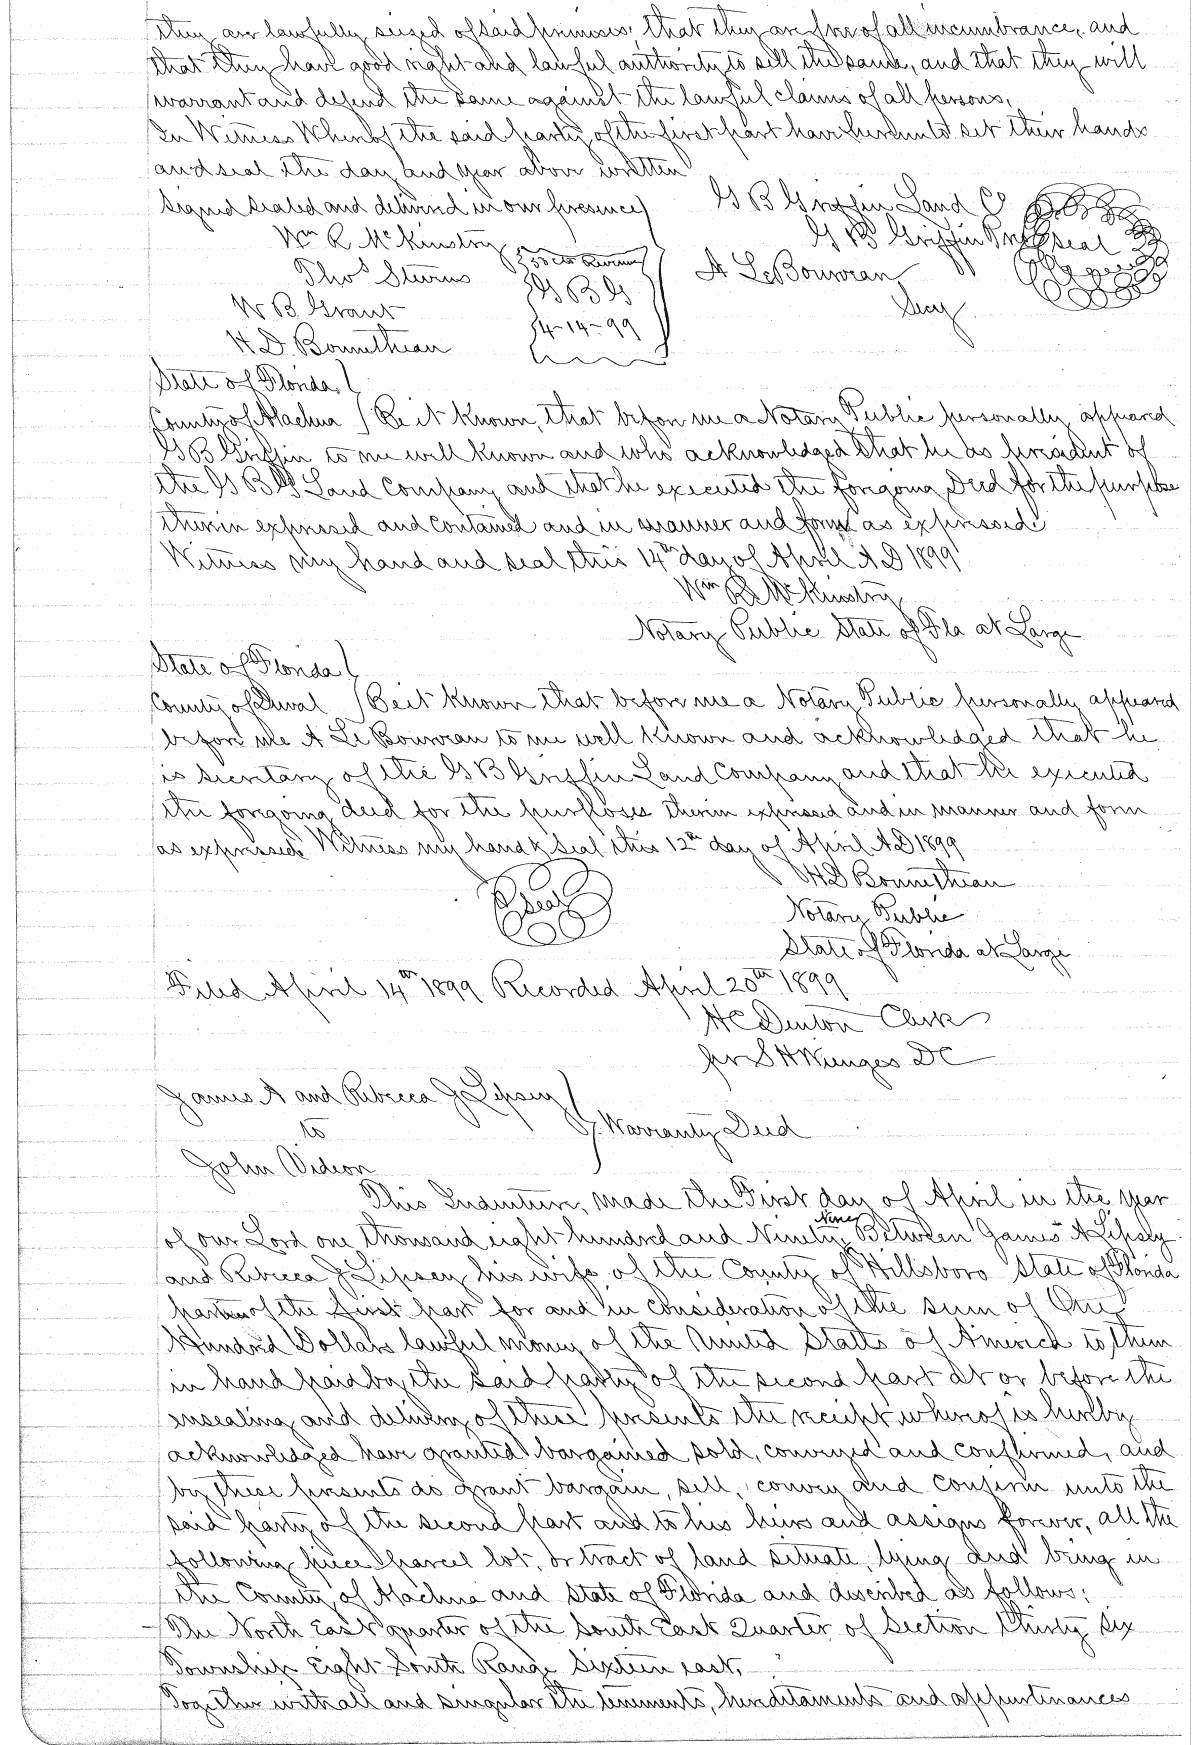 they are lawfully seized of said premises; that they are free of all incumbrance, and
that they have good right and lawful authority to sell the same, and that they will
warrant and defend the same against the lawful claims of all persons,
In Witness Whereof the said party of the first part have hereunto set their hands
and seal the day and year above written
Signed sealed and delivered in our presence G B Griffin Land Co
Wm R McKinstry G B Griffin Prest Seal
Thos Sterns 50 cts Revenue A LeBouvran
W B Grant G B G Secy
4-14-99
H. D. Bonnetheau
State of Florida
County of Alachua Be it Known, that before me a Notary Public personally appeared
G B Griffin to me well Known and who acknowledged that he as president of
the G B G Land Company and that he executed the foregoing Deed for the purpose
therein expressed and contained and in manner and form as expressed
Witness my hand and seal this 14th day of April A D 1899
Wm R McKinstry
Notary Public State of Fla at Large
State of Florida
County of Duval Be it Known that before me a Notary Public personally appeared
before me A Le Bouvran to me well known and acknowledged that he
is secretary of the G B Griffin Land Company and that he executed
the foregoing deed for the purposes therein expressed and in manner and form
as expressed Witness my hand & Seal this 12th day of April A D 1899
H D Bonnetheau
Seal Notary Public
State of Florida at Large
Filed April 14th 1899 Recorded April 20th 1899
H C Denton Clerk
per S H Wienges D C
James A and Rebecca J Lipsey
to Warranty Deed
John Videon
This Indenture, made the First day of April in the year
of our Lord one thousand eight hundred and Ninety Nine Between James A Lipsey
and Rebecca J Lipsey his wife of the County of Hillsboro State of Florida
parties of the first part for and in consideration of the sum of One
Hundred Dollars lawful money of the United States of America to them
in hand paid by the said party of the second part at or before the
ensealing and delivery of these presents the receipt whereof is hereby
acknowledged have granted bargained sold, conveyed and confirmed, and
by these presents do grant bargain, sell, convey and confirm unto the
said party of the second part and to his heirs and assigns forever, all the
following piece parcel lot, or tract of land situate, lying and being in
the County of Alachua and State of Florida and described as follows:
The North East quarter of the South East Quarter of Section thirty six
Township Eight South Range Sixteen east,
Together with all and singular the tenements, hereditaments and appurtenances